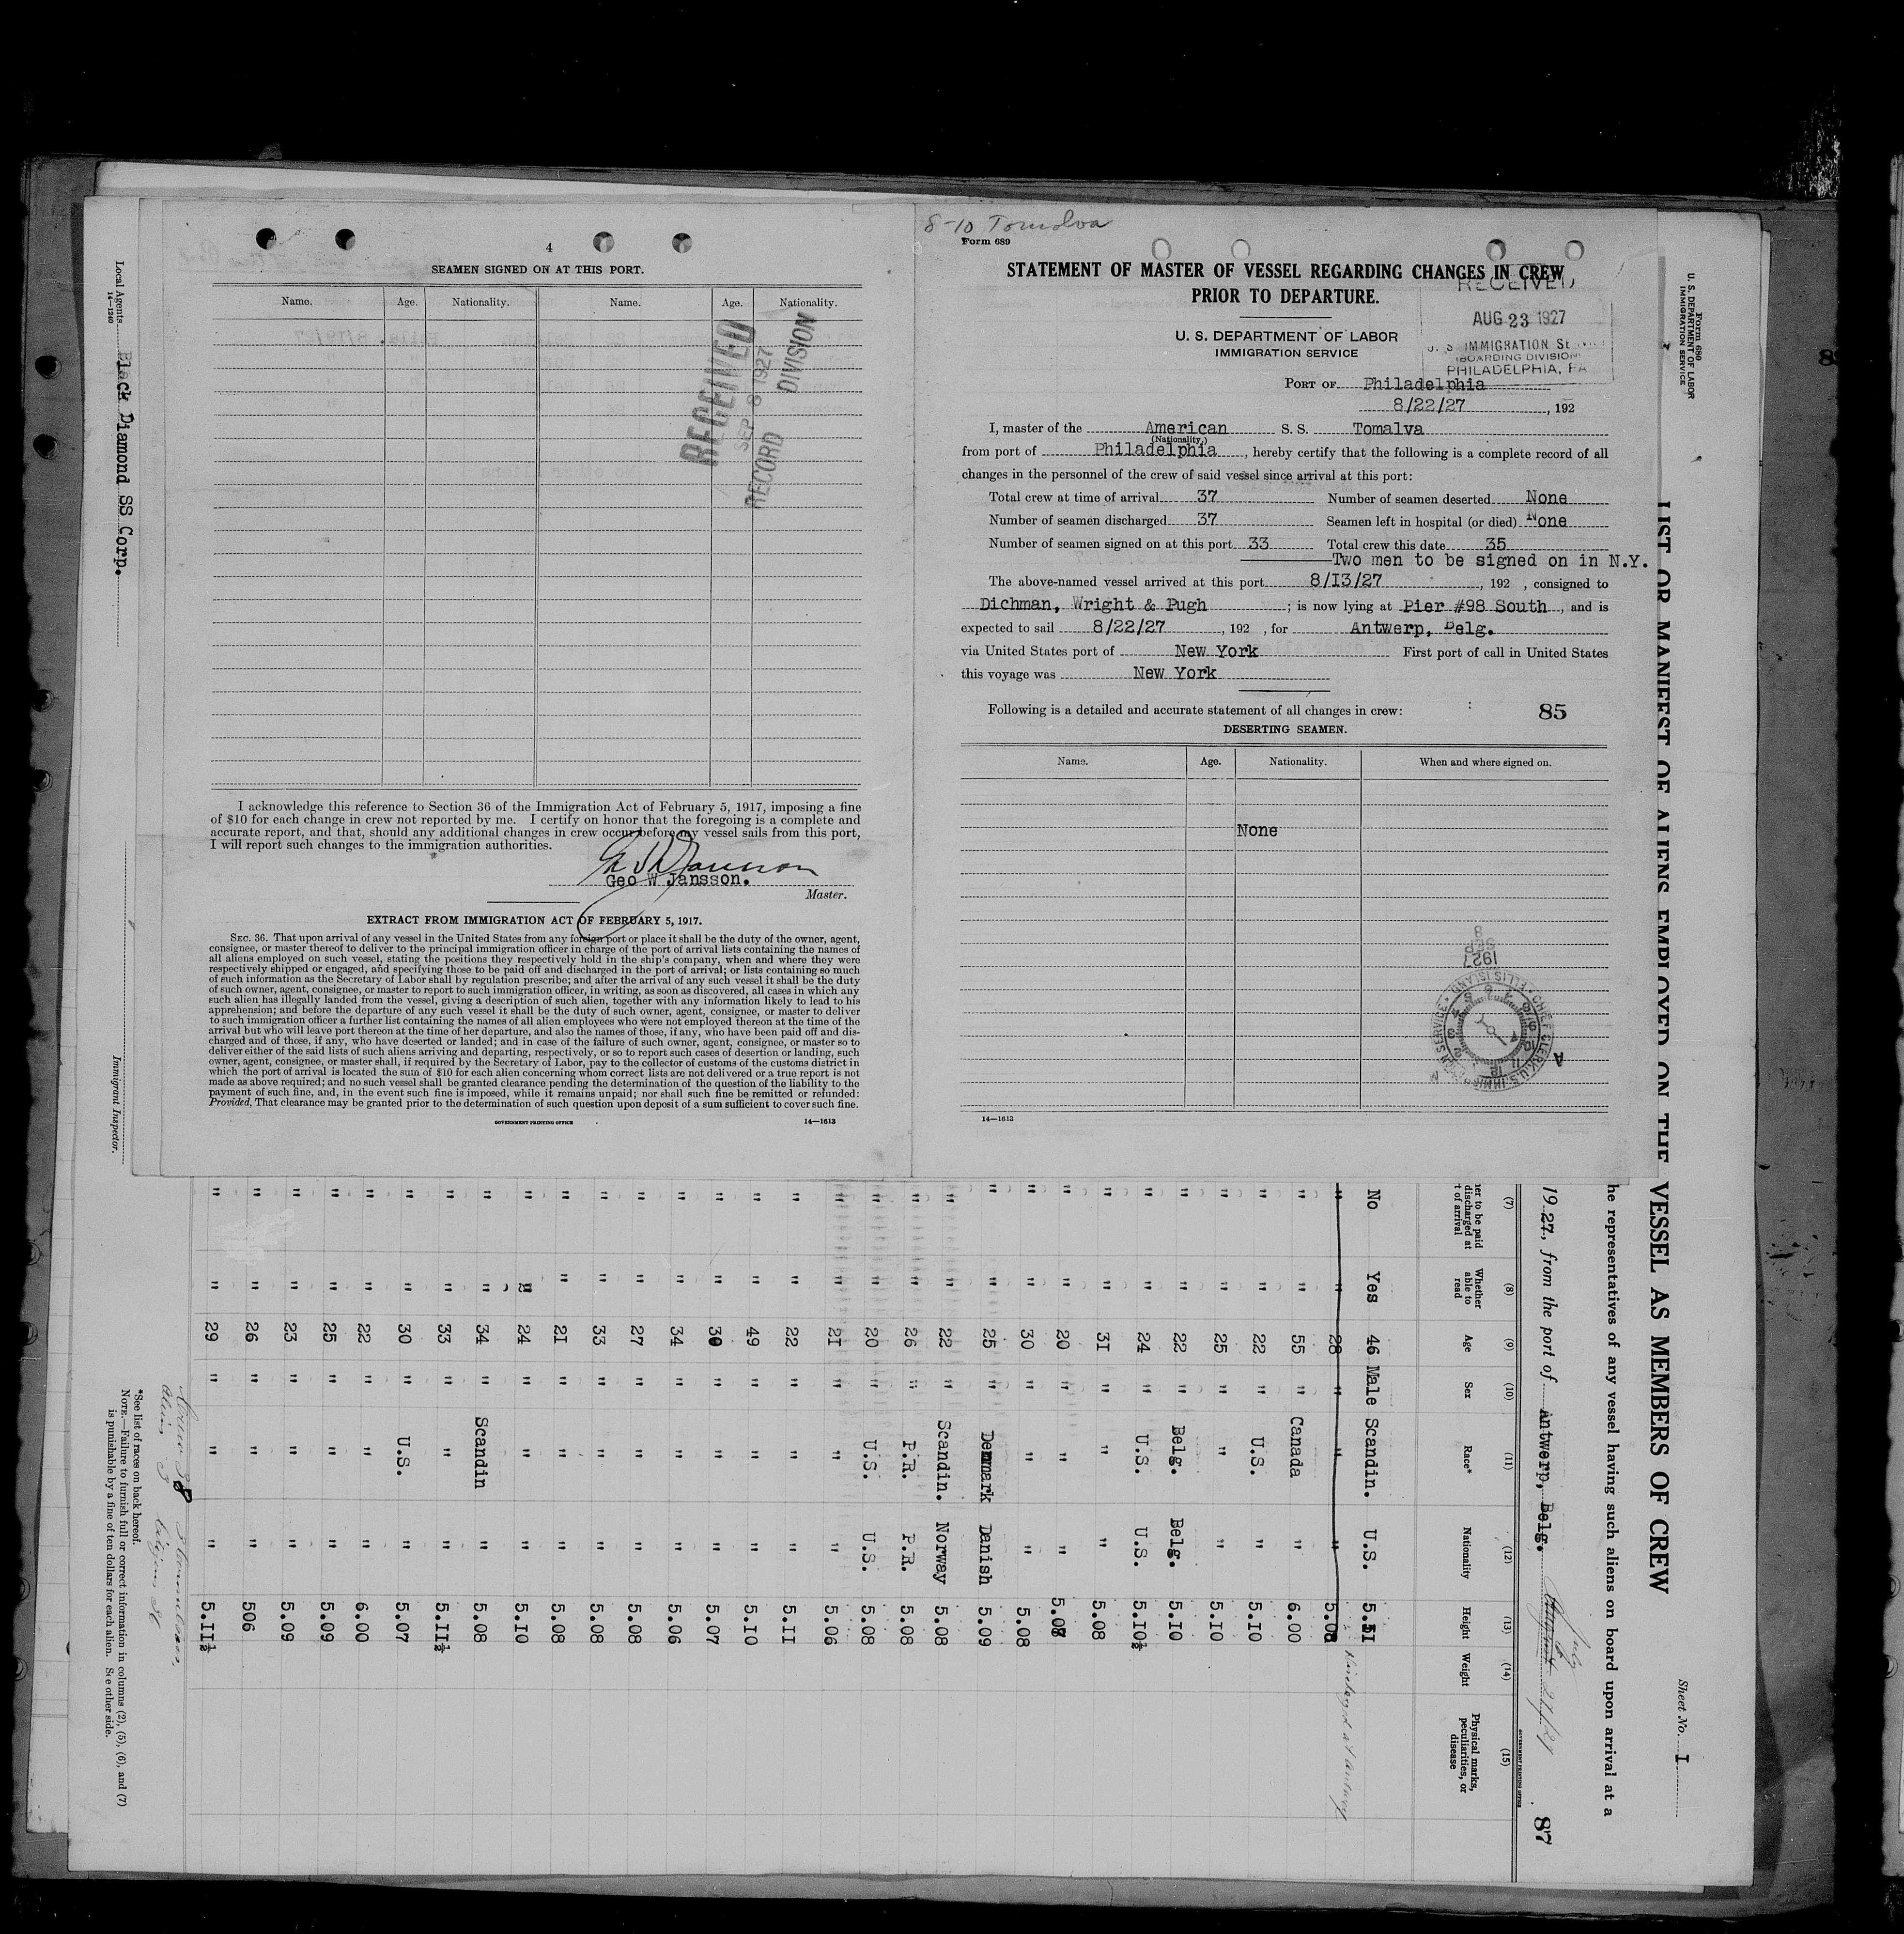 4
SEAMEN SIGNED ON AT THIS PORT.
Name. Age. Nationality. Name. Age. Nationality.
RECEIVED
SEP 8 1927
RECORD DIVISION
I acknowledge this reference to Section 36 of the Immigration Act of February 5, 1917, imposing a fine
of $10 for each change in crew not reported by me. I certify on honor that the foregoing is a complete and
accurate report, and that, should any additional changes in crew occur before my vessel sails from this port,
I will report such changes to the immigration authorities.
Geo W Jansson.
Master.
EXTRACT FROM IMMIGRATION ACT OF FEBRUARY 5, 1917.
SEC. 36. That upon arrival of any vessel in the United States from any foreign port or place it shall be the duty of the owner, agent,
consignee, or master thereof to deliver to the principal immigration officer in charge of the port of arrival lists containing the names of
all aliens employed on such vessel, stating the positions they respectively hold in the ship's company, when and where they were
respectively shipped or engaged, and specifying those to be paid off and discharged in the port of arrival; or lists containing so much
of such information as the Secretary of Labor shall by regulation prescribe; and after the arrival of any such vessel it shall be the duty
of such owner, agent, consignee, or master to report to such immigration officer, in writing, as soon as discovered, all cases in which any
such alien has illegally landed from the vessel, giving a description of such alien, together with any information likely to lead to his
apprehension; and before the departure of any such vessel it shall be the duty of such owner, agent, consignee, or master to deliver
to such immigration officer a further list containing the names of all alien employees who were not employed thereon at the time of the
arrival but who will leave port thereon at the time of her departure, and also the names of those, if any, who have been paid off and dis-
charged and of those, if any, who have deserted or landed; and in case of the failure of such owner, agent, consignee, or master so to
deliver either of the said lists of such aliens arriving and departing, respectively, or so to report such cases of desertion or landing, such
owner, agent, consignee, or master shall, if required by the Secretary of Labor, pay to the collector of customs of the customs district in
which the port of arrival is located the sum of $10 for each alien concerning whom correct lists are not delivered or a true report is not
made as above required; and no such vessel shall be granted clearance pending the determination of the question of the liability to the
payment of such fine, and, in the event such fine is imposed, while it remains unpaid; nor shall such fine be remitted or refunded:
Provided, That clearance may be granted prior to the determination of such question upon deposit of a sum sufficient to cover such fine.
GOVERNMENT PRINTING OFFICE 14—1613
8-10 Tomalva
Form 689
STATEMENT OF MASTER OF VESSEL REGARDING CHANGES IN CREW
PRIOR TO DEPARTURE.
U. S. DEPARTMENT OF LABOR
IMMIGRATION SERVICE
RECEIVED
AUG 23 1927
U. S. IMMIGRATION
BOARDING DIVISION
PHILADELPHIA, PA
PORT OF Philadelphia
8/22/27, 192
I, master of the American S. S. Tomalva
(Nationality.)
from port of Philadelphia, hereby certify that the following is a complete record of all
changes in the personnel of the crew of said vessel since arrival at this port:
Total crew at time of arrival 37 Number of seamen deserted None
Number of seamen discharged 37 Seamen left in hospital (or died) None
Number of seamen signed on at this port 33 Total crew this date 35
Two men to be signed on in N.Y.
The above-named vessel arrived at this port 8/I3/27, 192 , consigned to
Dichman, Wright & Pugh; is now lying at Pier #98 South, and is
expected to sail 8/22/27, 192 , for Antwerp, Belg.
via United States port of New York First port of call in United States
this voyage was New York
Following is a detailed and accurate statement of all changes in crew: 85
DESERTING SEAMEN.
Name. Age. Nationality. When and where signed on.
None
1927
SEP
8
14—1613
Local Agents Black Diamond SS Corp.
14—1240
Immigrant Inspector.
Form 680
U. S. DEPARTMENT OF LABOR
IMMIGRATION SERVICE
Sheet No. I
LIST OR MANIFEST OF ALIENS EMPLOYED ON THE VESSEL AS MEMBERS OF CREW
he representatives of any vessel having such aliens on board upon arrival at a
1927, from the port of Antwerp, Belg. July 27/27
87
(7) (8) (9) (10) (11) (12) (13) (14) (15)
her to be paid discharged at t of arrival Whether able to read Age Sex Race* Nationality Height Weight Physical marks, peculiarities, or disease
No Yes 46 Male Scandin. U.S. 5.5I
" " 28 " " " 5.08
" " 55 " Canada " 6.00
" " 22 " U.S. " 5.10
" " 25 " " " 5.10
" " 22 " Belg. Belg. 5.10
" " 24 " U.S. U.S. 5.10½
" " 3I " " " 5.08
" " 20 " " " 5.08
" " 30 " " " 5.08
" " 25 " Denmark Danish 5.09
" " 22 " Scandin. Norway 5.08
" " 26 " P.R. P.R. 5.08
" " 20 " U.S. U.S. 5.08
" " 2I " " " 5.06
" " 22 " " " 5.II
" " 49 " " " 5.10
" " 30 " " " 5.07
" " 34 " " " 5.06
" " 27 " " " 5.08
" " 33 " " " 5.08
" " 2I " " " 5.08
" " 24 " " " 5.10
" " 34 " Scandin " 5.08
" " 33 " " " 5.II½
" " 30 " U.S. " 5.07
" " 22 " " " 6.00
" " 25 " " " 5.09
" " 23 " " " 5.09
" " 26 " " " 506
" " 29 " " " 5.II½
*See list of races on back hereof.
NOTE.—Failure to furnish full or correct information in columns (2), (5), (6), and (7)
is punishable by a fine of ten dollars for each alien. See other side.